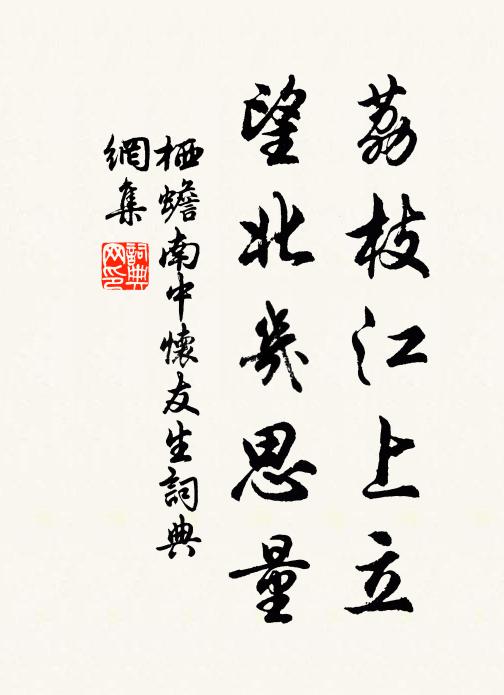 荔枝江上立
望北幾思量
栖蟾南中懷友生詞典
網集
詞典
网印